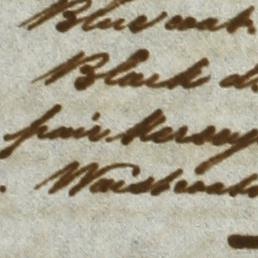 Blue coat
Black d
pair Kersey
Waistcoat